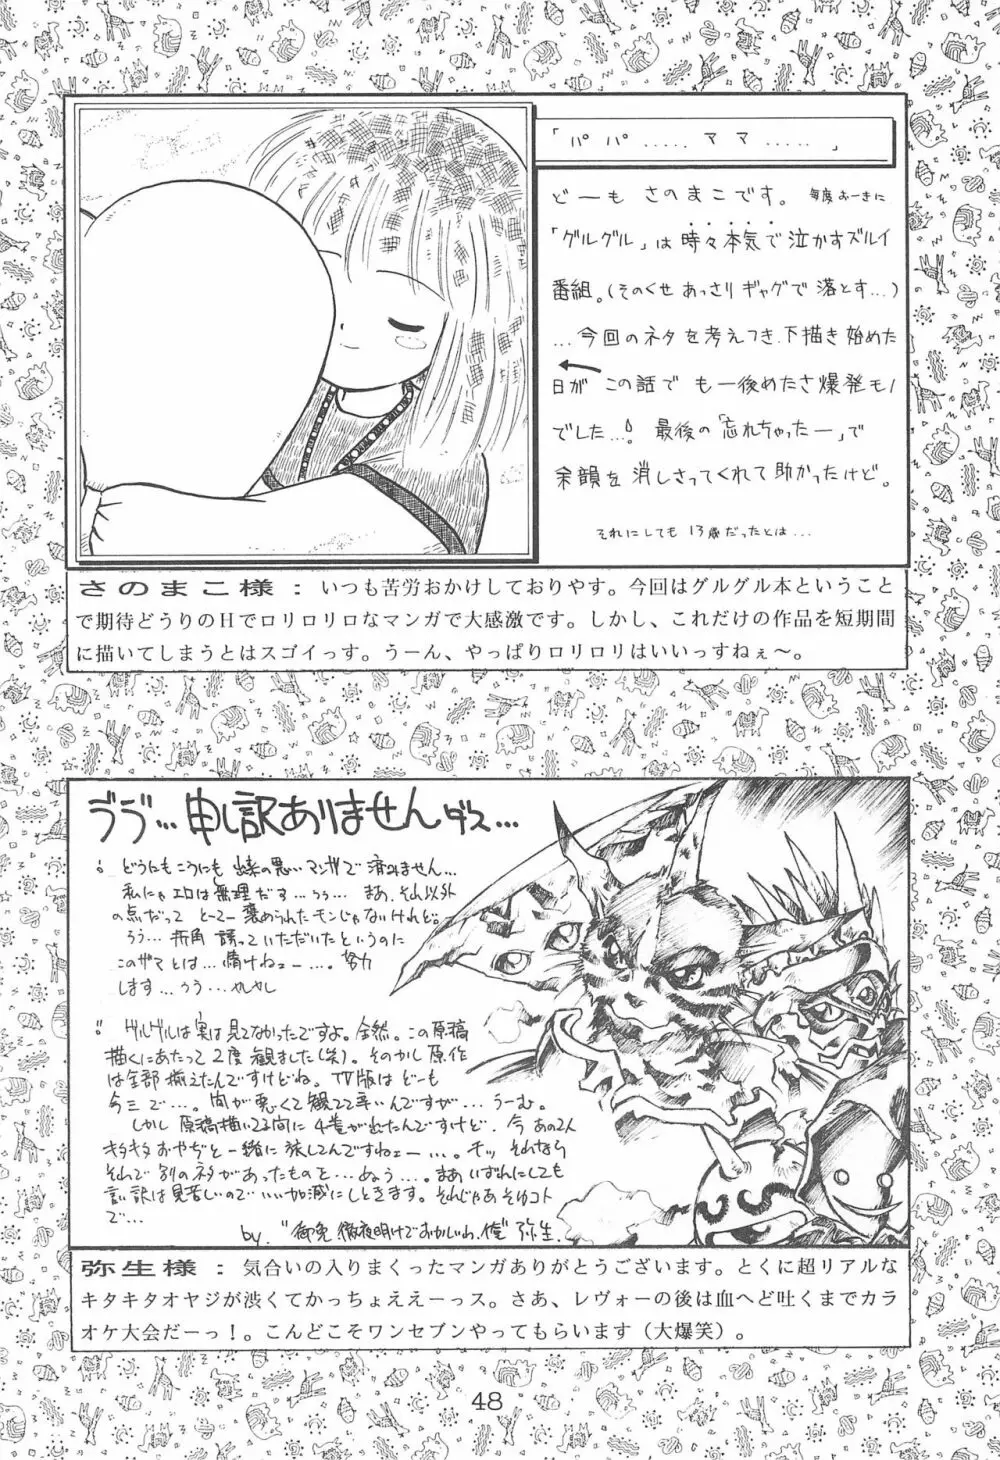 「パパ..... ママ.....」
どーも さのまこです。 毎度おーきに
「グルグル」は時々本気で泣かすズルイ
番組。(そのくせ あっさり ギャグで 落とす…)
…今回のネタ を 考えつき、下描き 始めた
日が この話で も一後めたさ爆発モノ
でした…。 最後の「忘れちゃったー」で
余韻を 消しさってくれて 助かったけど。
それにしても 13歳だったとは…
さのまこ様：いつも苦労おかけしておりやす。今回はグルグル本ということ
で期待どうりのHでロリロリロなマンガで大感激です。しかし、これだけの作品を短期間
に描いてしまうとはスゴイっす。うーん、やっぱりロリロリはいいっすねぇ〜。
申し訳ありません
どうにもこうにも 出来の悪いマンガで 済みません…
私にゃ エロは無理だす…うぅ… まあ、それ以外
の点だって とてー 褒められたモンじゃないけれど。
うう… 折角 誘っていただいたというのに
このザマとは… 情けねェー…。努力
します…うう…
グルグルは実は見てなかったですよ。全然。この原稿
描くにあたって 2度 観ました(笑)。そのかし 原作
は全部 揃えたんですけどね。TV版は どーも
今三で…。間が悪くて観てて辛いんですが…うーむ。
しかし 原稿描いてる間に 4巻がでたんですけど、今 あの2人
キタキタおやぢと 一緒に 旅してんですねェー…。 それなら
それで 別のネタがあったものを…ぬょう…。まあいずれにしても
言い訳は見苦しいので いい加減にしときます。そんじゃあ そゆコト
で…
by. "御免 徹夜明けでおかしいわ、俺" 弥生.
弥生様：気合いの入りまくったマンガありがとうございます。とくに超リアルな
キタキタオヤジが渋くてかっちょええーっス。さあ、レヴォーの後は血へど吐くまでカラ
オケ大会だーっ！。こんどこそワンセブンやってもらいます（大爆笑）。
48